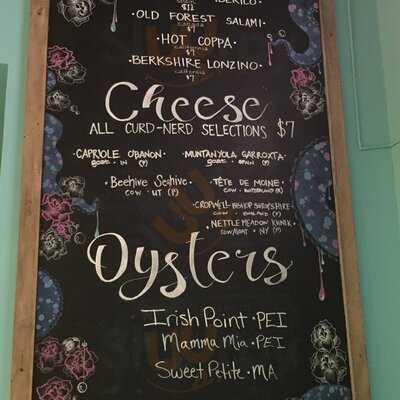 IBERICO·
$12
·OLD FOREST SALAMI·
canada
$7
·HOT COPPA·
california
$7
·BERKSHIRE LONZINO·
california
$7
Cheese
ALL CURD-NERD SELECTIONS $7
·CAPRIOLE O'BANON· ·MUNTANYOLA GARROXTA·
goat · IN (P) goat · SPAIN (P)
·Beehive Seahive· ·TÊTE DE MOINE·
COW · UT (P) COW · SWITZERLAND (R)
·CROPWELL BISHOP SHROPSHIRE·
COW · ENGLAND (P)
·NETTLE MEADOW KUNIK·
COW/GOAT · NY (P)
Oysters
Irish Point · PEI
Mamma Mia · PEI
Sweet Petite · MA